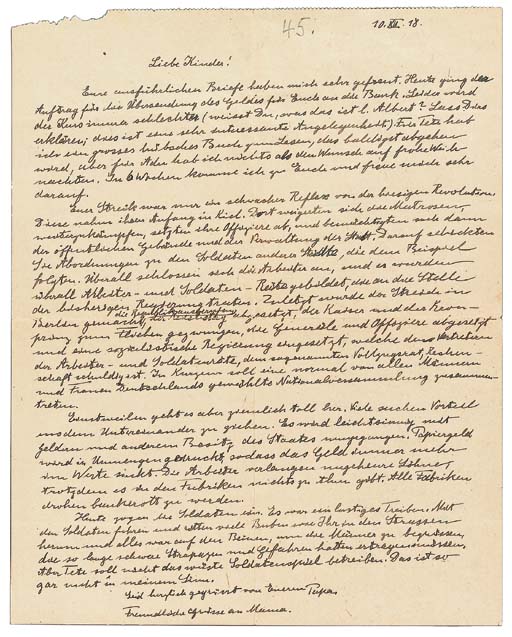 45.
10. XII. 18.
Liebe Kinder!
Eure ausführlichen Briefe haben mich sehr gefreut. Heute ging der
Auftrag für die Übersendung des Geldes für Euch an die Bank. Leider wird
der Kurs immer schlechter (weisst Du, was das ist l. Albert? Lass Dirs
erklären; dies ist eine sehr interessante Angelegenheit). Für Tete hab
ich ein grosses hübsches Buch gefunden, das baldigst abgehen
wird, aber für Adu hab ich nichts als den Wunsch auf frohe Weih-
nachten. In 6 Wochen komme ich zu Euch und freue mich sehr
darauf.
Euer Streik war nur ein schwacher Reflex von der hiesigen Revolution.
Diese nahm ihren Anfang in Kiel. Dort weigerten sich die Matrosen,
weiterzukämpfen, setzten ihre Offiziere ab, und bemächtigten sich dann
der öffentlichen Gebäude und der Verwaltung der Stadt. Darauf schickten
sie Abordnungen zu den Soldaten anderer Städte, die dem Beispiel
folgten. Überall schlossen sich die Arbeiter an, und es wurden
überall Arbeiter- und Soldaten-Räte gebildet, die an die Stelle
der bisherigen Regierung traten. Zuletzt wurde der Streich in
Berlin gemacht, abgesetzt, der Kaiser und der Kron-
prinz zum Fliehen gezwungen, die Generäle und Offiziere abgesetzt
und eine sozialistische Regierung eingesetzt, welche den Vertretern
der Arbeiter- und Soldatenräte, dem sogenannten Vollzugsrat, Rechen-
schaft schuldig ist. In Kurzem soll eine normal von allen Männern
und Frauen Deutschlands gewählte Nationalversammlung zusammen-
treten.
Einstweilen geht es aber ziemlich toll her. Viele suchen Vorteil
aus dem Untereinander zu ziehen. Es wird leichtsinnig mit
Geldern und anderem Besitz des Staates umgegangen. Papiergeld
wird in Unmengen gedruckt, sodass das Geld immer mehr
im Werte sinkt. Die Arbeiter verlangen ungeheure Löhne,
trotzdem es in den Fabriken nichts zu thun gibt. Alle Fabriken
drohen bankerott zu werden.
Heute zogen die Soldaten ein. Es war ein lustiges Treiben. Mit
den Soldaten fuhren und ritten viele Buben wie Ihr in den Strassen
herum und alles war auf den Beinen, um die Männer zu begrüssen,
die so lange schwere Strapazen und Gefahren hatten ertragen müssen.
Aber Tete soll nicht das wüste Soldatenspiel betreiben. Das ist so
gar nicht in meinem Sinne.
Seid herzlich gegrüsst von Eurem Papa.
Freundliche Grüsse an Mama.